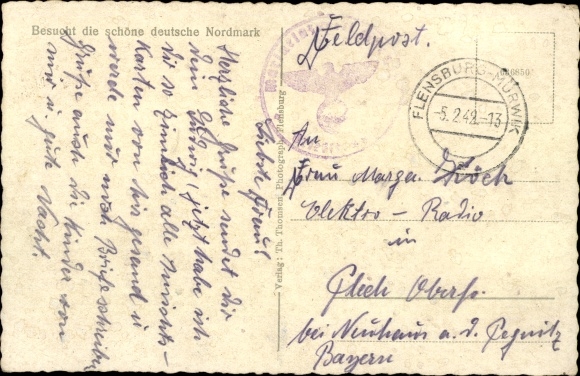 Besucht die schöne deutsche Nordmark
Feldpost.
FLENSBURG-MÜRWIK
-5.2.42.-13
Liebste Frau!
Herzliche Grüße sendet dir
dein Ludwig, jetzt habe ich
dir so ziemlich alle Ansichts-
Karten von hier gesand u
werde nur noch Briefe schreiben
Grüße auch die Kinder von
mir u. gute Nacht.
Verlag: Th. Thomsen, Photograph, Flensburg
An
Frau Marga.
Elektro - Radio
in
Plech Oberfr.
bei Neuhaus a. d. Pegnitz
Bayern